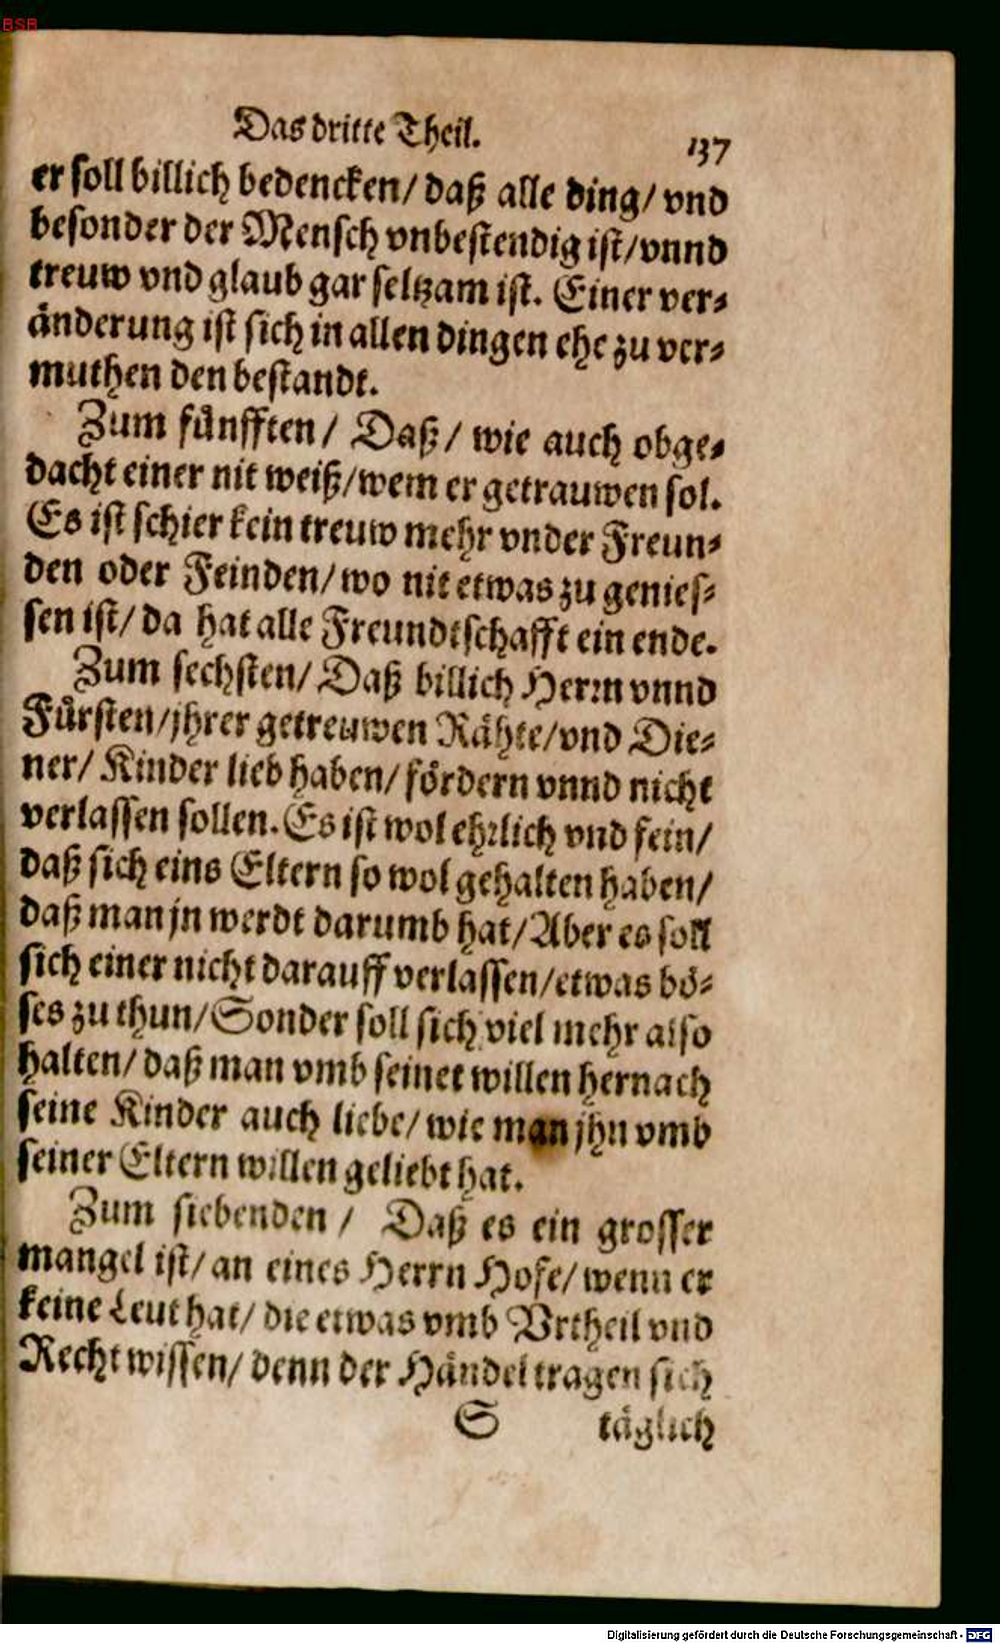 BSB
Das dritte Theil. 137
er soll billich bedencken/ daß alle ding/ vnd
besonder der Mensch vnbestendig ist/ vnnd
treuw vnd glaub gar seltzam ist. Einer ver⸗
änderung ist sich in allen dingen ehe zu ver⸗
muthen den bestandt.
Zum fünfften/ Daß/ wie auch obge⸗
dacht einer nit weiß/ wem er getrauwen sol.
Es ist schier kein treuw mehr vnder Freun⸗
den oder Feinden/ wo nit etwas zu genies⸗
sen ist/ da hat alle Freundtschafft ein ende.
Zum sechsten/ Daß billich Herrn vnnd
Fürsten/ jhrer getreuwen Rähte/ vnd Die⸗
ner/ Kinder lieb haben/ fördern vnnd nicht
verlassen sollen. Es ist wol ehrlich vnd fein/
daß sich eins Eltern so wol gehalten haben/
daß man jn werdt darumb hat/ Aber es soll
sich einer nicht darauff verlassen/ etwas bö⸗
ses zu thun/ Sonder soll sich viel mehr also
halten/ daß man vmb seinet willen hernach
seine Kinder auch liebe/ wie man jhn vmb
seiner Eltern willen geliebt hat.
Zum siebenden/ Daß es ein grosser
mangel ist/ an eines Herrn Hofe/ wenn er
keine Leut hat/ die etwas vmb Vrtheil vnd
Recht wissen/ denn der Händel tragen sich
S täglich
Digitalisierung gefördert durch die Deutsche Forschungsgemeinschaft - DFG